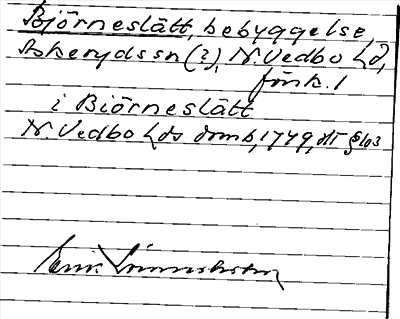 Björneslätt, bebyggelse,
Askerydssn (?), N. Vedbo hd,
förk. 1
i Biörneslätt
N. Vedbo hds domb, 1749, dt § 103